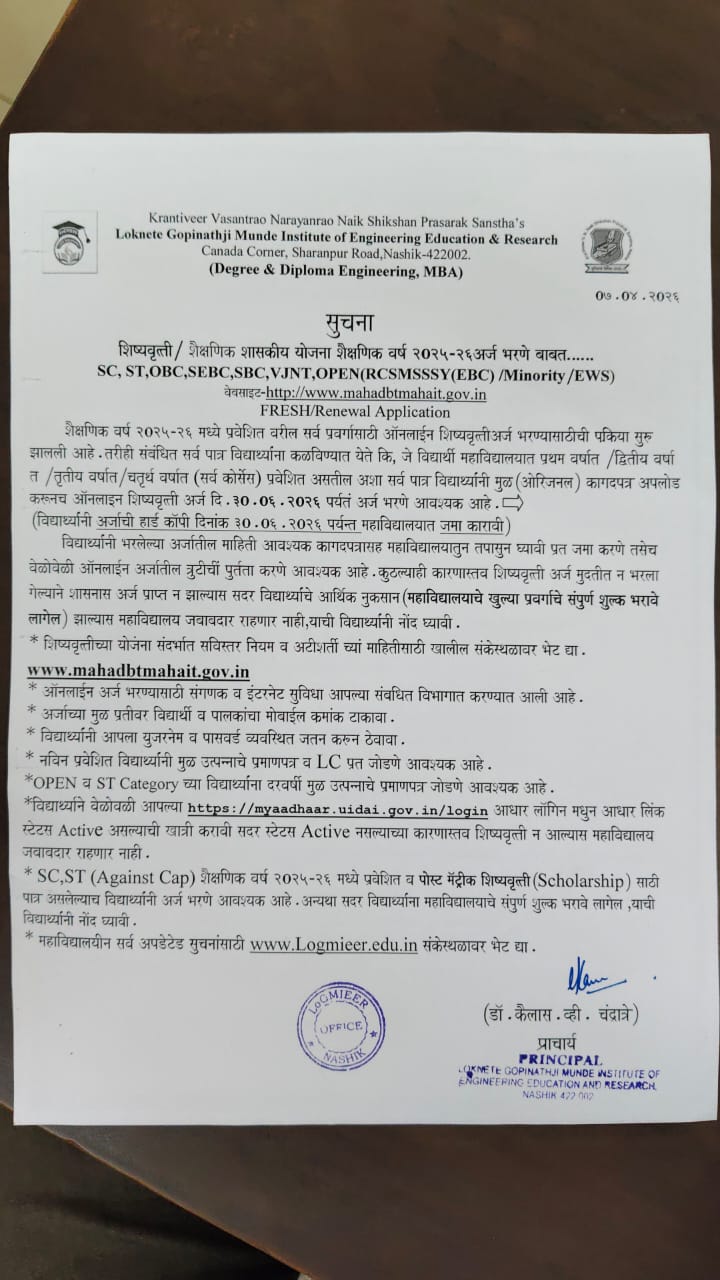 Krantiveer Vasantrao Narayanrao Naik Shikshan Prasarak Sanstha's
Loknete Gopinathji Munde Institute of Engineering Education & Research
Canada Corner, Sharanpur Road,Nashik-422002.
(Degree & Diploma Engineering, MBA)
०७.०४.२०२६
सुचना
शिष्यवृत्ती/ शैक्षणिक शासकीय योजना शैक्षणिक वर्ष २०२५-२६अर्ज भरणे बाबत......
SC, ST,OBC,SEBC,SBC,VJNT,OPEN(RCSMSSSY(EBC) /Minority /EWS)
वेबसाइट-http://www.mahadbtmahait.gov.in
FRESH/Renewal Application
शैक्षणिक वर्ष २०२५-२६ मध्ये प्रवेशित वरील सर्व प्रवर्गासाठी ऑनलाईन शिष्यवृत्तीअर्ज भरण्यासाठीची पकिया सुरु
झालली आहे .तरीही संबंधित सर्व पात्र विद्यार्थ्यांना कळविण्यात येते कि, जे विद्यार्थी महाविद्यालयात प्रथम वर्षात /द्वितीय वर्षा
त /तृतीय वर्षात/चतृर्थ वर्षात (सर्व कोर्सेस) प्रवेशित असतील अशा सर्व पात्र विद्यार्थ्यांनी मुळ (ओरिजनल) कागदपत्र अपलोड
करूनच ऑनलाइन शिष्यवृत्ती अर्ज दि .३०.०६.२०२६ पर्यतं अर्ज भरणे आवश्यक आहे .
(विद्यार्थ्यांनी अर्जाची हार्ड कॉपी दिनांक ३०.०६.२०२६ पर्यन्त महाविद्यालयात जमा कारावी)
विद्यार्थ्यांनी भरलेल्या अर्जातील माहिती आवश्यक कागदपत्रासह महाविद्यालयातुन तपासुन घ्यावी प्रत जमा करणे तसेच
वेळोवेळी ऑनलाईन अर्जातील त्रुटीचीं पुर्तता करणे आवश्यक आहे .कुठल्याही कारणास्तव शिष्यवृत्ती अर्ज मुदतीत न भरला
गेल्याने शासनास अर्ज प्राप्त न झाल्यास सदर विद्यार्थ्याचे आर्थिक नुकसान(महाविद्यालयाचे खुल्या प्रवर्गाचे संपुर्ण शुल्क भरावे
लागेल) झाल्यास महाविद्यालय जवाबदार राहणार नाही,याची विद्यार्थ्यांनी नोंद घ्यावी .
* शिष्यवृत्तीच्या योजना संदर्भात सविस्तर नियम व अटीशर्ती च्यां माहितीसाठी खालील संकेस्थळावर भेट द्या .
www.mahadbtmahait.gov.in
* ऑनलाईन अर्ज भरण्यासाठी संगणक व इंटरनेट सुविधा आपल्या संबधित विभागात करण्यात आली आहे .
* अर्जाच्या मुळ प्रतीवर विद्यार्थी व पालकांचा मोबाईल कमांक टाकावा .
* विद्यार्थ्यांनी आपला युजरनेम व पासवर्ड व्यवस्थित जतन करून ठेवावा .
* नविन प्रवेशित विद्यार्थ्यांनी मुळ उत्पन्नाचे प्रमाणपत्र व LC प्रत जोडणे आवश्यक आहे .
*OPEN व ST Category च्या विद्यार्थ्यांना दरवर्षी मुळ उत्पन्नाचे प्रमाणपत्र जोडणे आवश्यक आहे .
*विद्यार्थ्याने वेळोवळी आपल्या https://myaadhaar.uidai.gov.in/login आधार लॉगिन मधुन आधार लिंक
स्टेटस Active असल्याची खात्री करावी सदर स्टेटस Active नसल्याच्या कारणास्तव शिष्यवृत्ती न आल्यास महाविद्यालय
जवाबदार राहणार नाही .
* SC,ST (Against Cap) शैक्षणिक वर्ष २०२५-२६ मध्ये प्रवेशित व पोस्ट मॅट्रीक शिष्यवृत्ती(Scholarship) साठी
पात्र असलेल्याच विद्यार्थ्यांनी अर्ज भरणे आवश्यक आहे .अन्यथा सदर विद्यार्थ्यांना महाविद्यालयाचे संपुर्ण शुल्क भरावे लागेल ,याची
विद्यार्थ्यांनी नोंद घ्यावी .
* महाविद्यालयीन सर्व अपडेटेड सुचनांसाठी www.Logmieer.edu.in संकेस्थळावर भेट द्या .
LOGMIEER
OFFICE
NASHIK
(डॉ .कैलास .व्ही . चंद्रात्रे)
प्राचार्य
PRINCIPAL
LOKNETE GOPINATHJI MUNDE INSTITUTE OF
ENGINEERING EDUCATION AND RESEARCH,
NASHIK 422 002